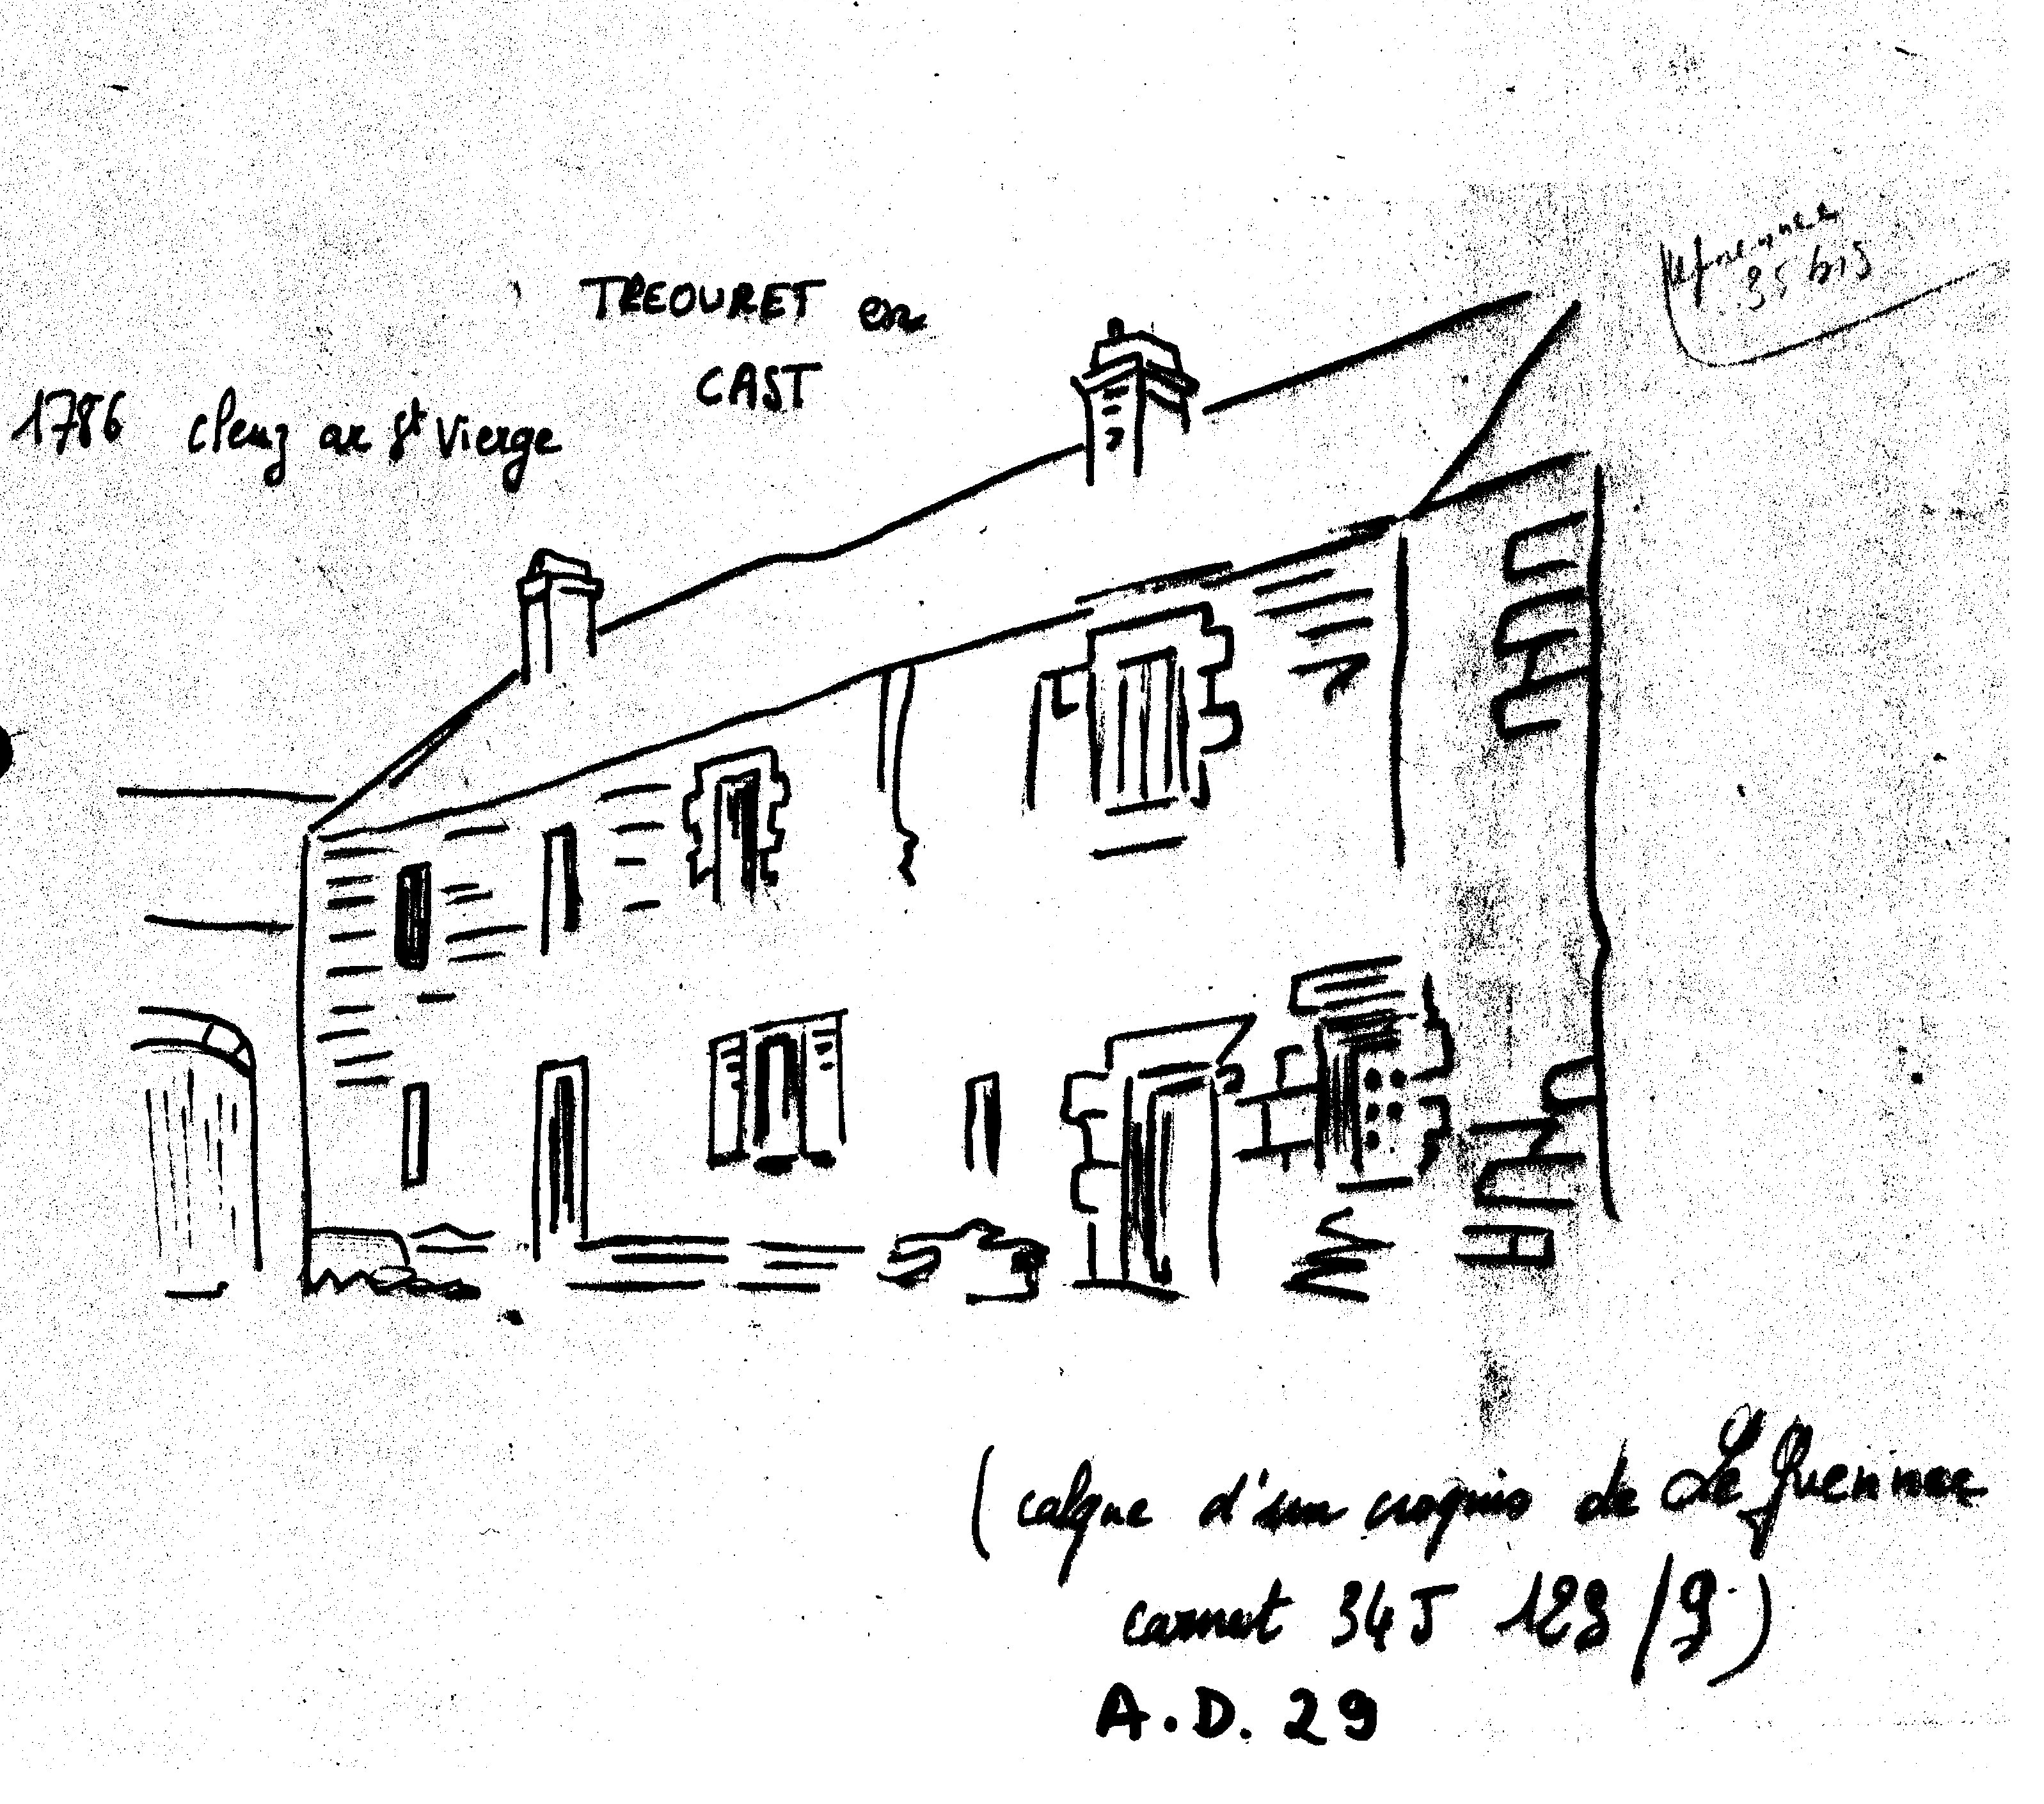 TREOURET en
CAST
35 bis
1786 cleuz ar St Vierge
(calque d'un croquis de Le Guennec
carnet 34 J 129 / 9)
A.D. 29